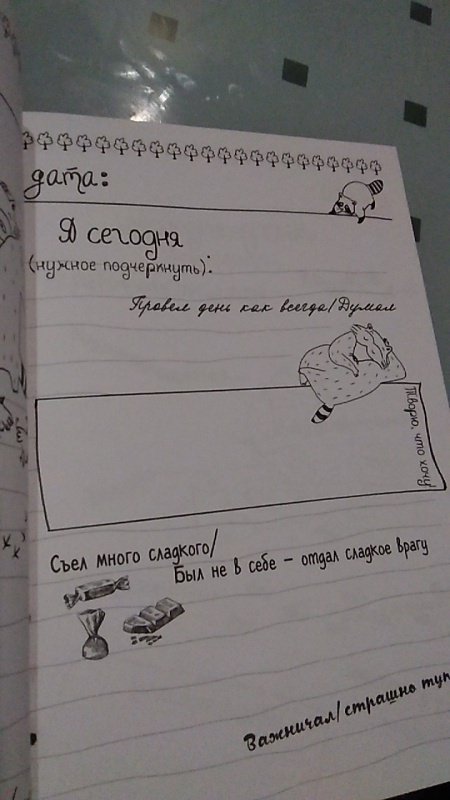 дата:
Я сегодня
(нужное подчеркнуть):
Провел день как всегда/Думал
Творю, что хочу
Съел много сладкого/
Был не в себе – отдал сладкое врагу
Важничал/страшно